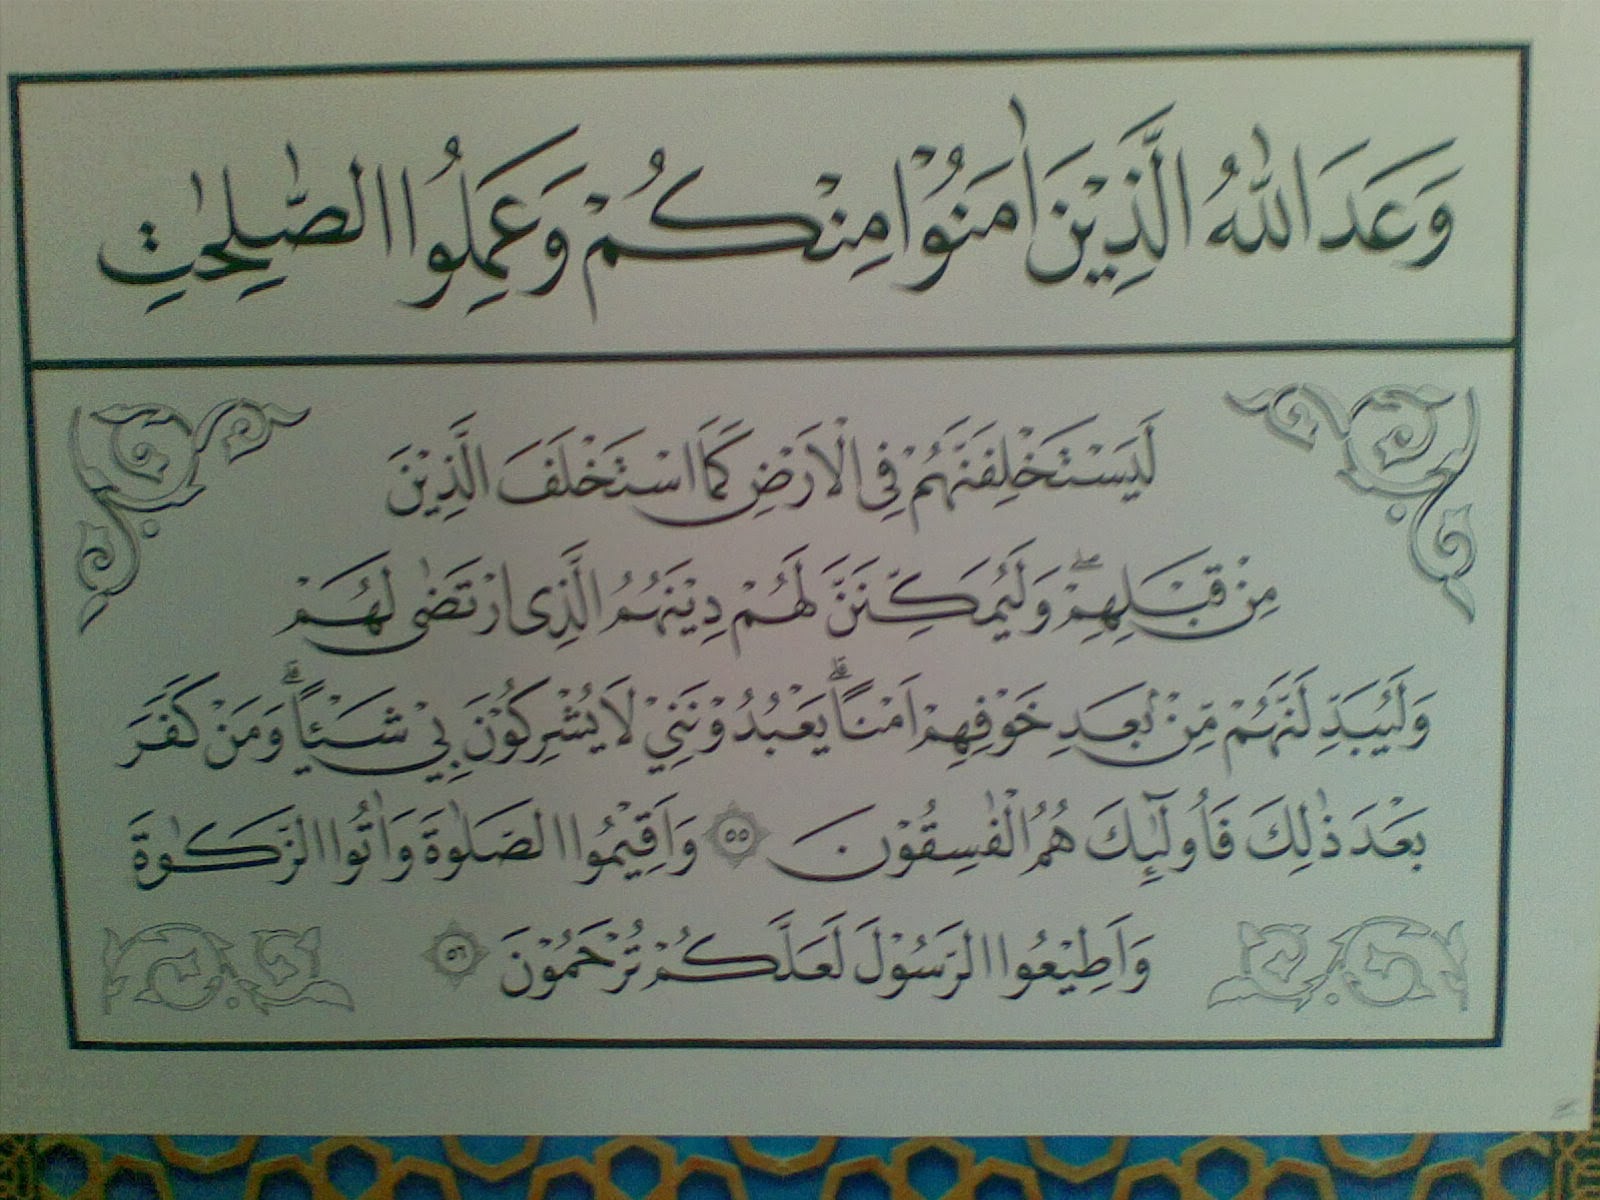 وَعَدَ اللّٰهُ الَّذِيْنَ اٰمَنُوْا مِنْكُمْ وَعَمِلُوا الصّٰلِحٰتِ
لَيَسْتَخْلِفَنَّهُمْ فِى الْاَرْضِ كَمَا اسْتَخْلَفَ الَّذِيْنَ
مِنْ قَبْلِهِمْۖ وَلَيُمَكِّنَنَّ لَهُمْ دِيْنَهُمُ الَّذِى ارْتَضٰى لَهُمْ
وَلَيُبَدِّلَنَّهُمْ مِّنْۢ بَعْدِ خَوْفِهِمْ اَمْنًاۗ يَعْبُدُوْنَنِيْ لَا يُشْرِكُوْنَ بِيْ شَيْـًٔاۗ وَمَنْ كَفَرَ
بَعْدَ ذٰلِكَ فَاُولٰۤىِٕكَ هُمُ الْفٰسِقُوْنَ ٥٥ وَاَقِيْمُوا الصَّلٰوةَ وَاٰتُوا الزَّكٰوةَ
وَاَطِيْعُوا الرَّسُوْلَ لَعَلَّكُمْ تُرْحَمُوْنَ ٥٦